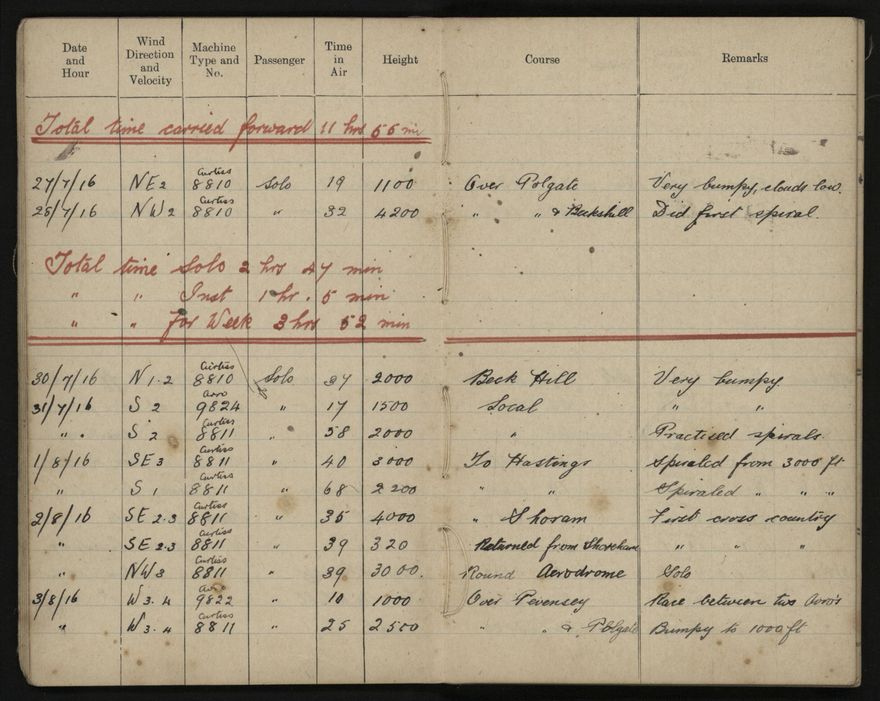 Date and Hour | Wind Direction and Velocity | Machine Type and No. | Passenger | Time in Air | Height | Course | Remarks
Total time carried forward 11 hrs 55 min
27/7/16 | NE 2 | Curtiss 8810 | Solo | 19 | 1100 | Over Polgate | Very bumpy, clouds low.
28/7/16 | NW 2 | Curtiss 8810 | " | 32 | 4200 | " " & Beckshill | Did first spiral.
Total time Solo 2 hrs 47 min
" " Inst 1 hr . 5 min
" " For Week 3 hrs 52 min
30/7/16 | N 1.2 | Curtiss 8810 | Solo | 37 | 2000 | Beck Hill | Very bumpy
31/7/16 | S 2 | Avro 9824 | " | 17 | 1500 | Local | " "
" . | S 2 | Curtiss 8811 | " | 58 | 2000 | " | Practised spirals
1/8/16 | SE 3 | Curtiss 8811 | " | 40 | 3000 | To Hastings | Spiraled from 3000 ft
" | S 1 | Curtiss 8811 | " | 68 | 2200 | " " | Spiraled " " "
2/8/16 | SE 2.3 | Curtiss 8811 | " | 35 | 4000 | " Shoram | First cross country
" | SE 2.3 | Curtiss 8811 | " | 39 | 320 | Returned from Shoreham | " " "
" | NW 3 | Curtiss 8811 | " | 39 | 3000. | Round Aerodrome | Solo
3/8/16 | W 3.4 | Avro 9822 | " | 10 | 1000 | Over Pevensey | Race between two Avro's
" | W 3.4 | Curtiss 8811 | " | 25 | 2500 | " " & Polgate | Bumpy to 1000 ft